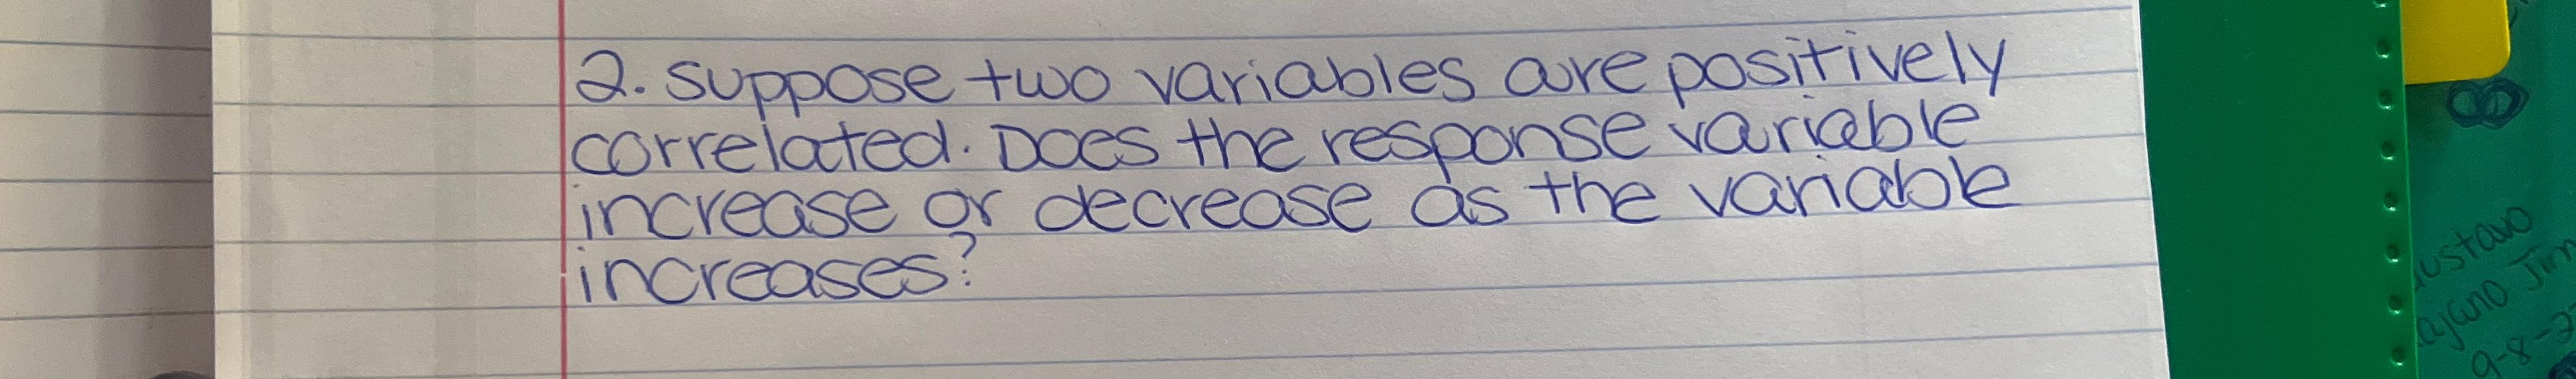 2. Suppose two variables are positively
correlated. Does the response variable
increase or decrease as the variable
increases?
9-8-